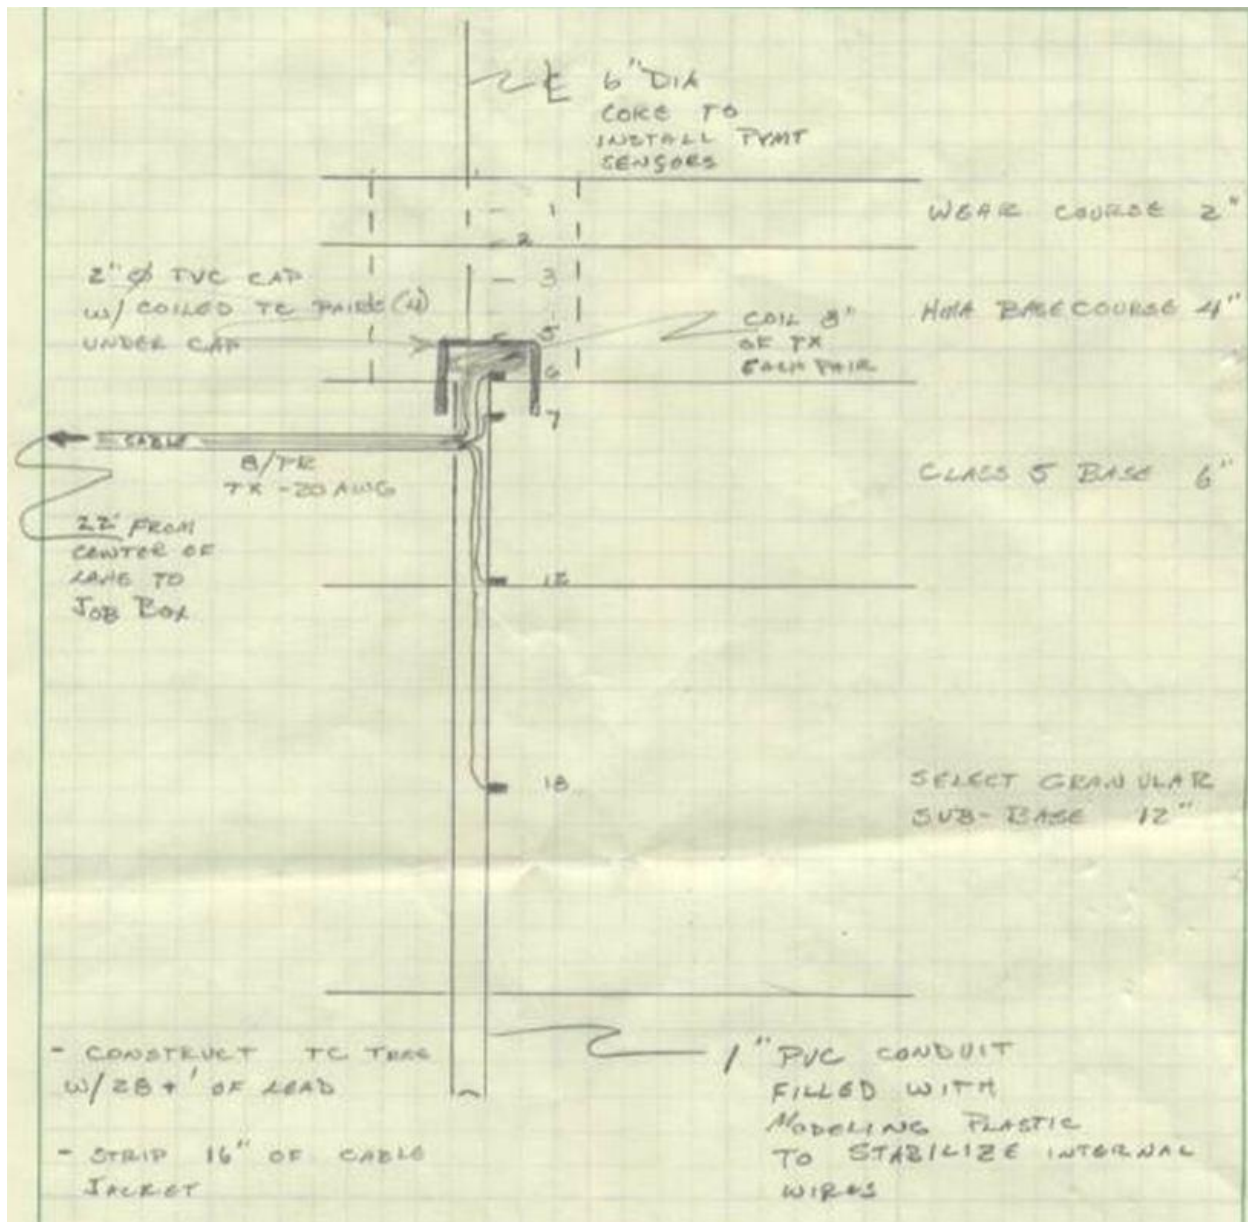 ℄ 6" DIA
CORE TO
INSTALL PVMT
SENSORS
1
WEAR COURSE 2"
2
3
2" Ø PVC CAP
W/ COILED TC PAIRS (4)
UNDER CAP
COIL 8"
OF TX
EACH PAIR
HMA BASECOURSE 4"
5
6
7
CABLE
8/PR
TX - 20 AWG
CLASS 5 BASE 6"
22' FROM
CENTER OF
LANE TO
JOB BOX
12
18
SELECT GRANULAR
SUB-BASE 12"
- CONSTRUCT TC TREE
W/ 28+' OF LEAD
- STRIP 16" OF CABLE
JACKET
1" PVC CONDUIT
FILLED WITH
MODELING PLASTIC
TO STABILIZE INTERNAL
WIRES